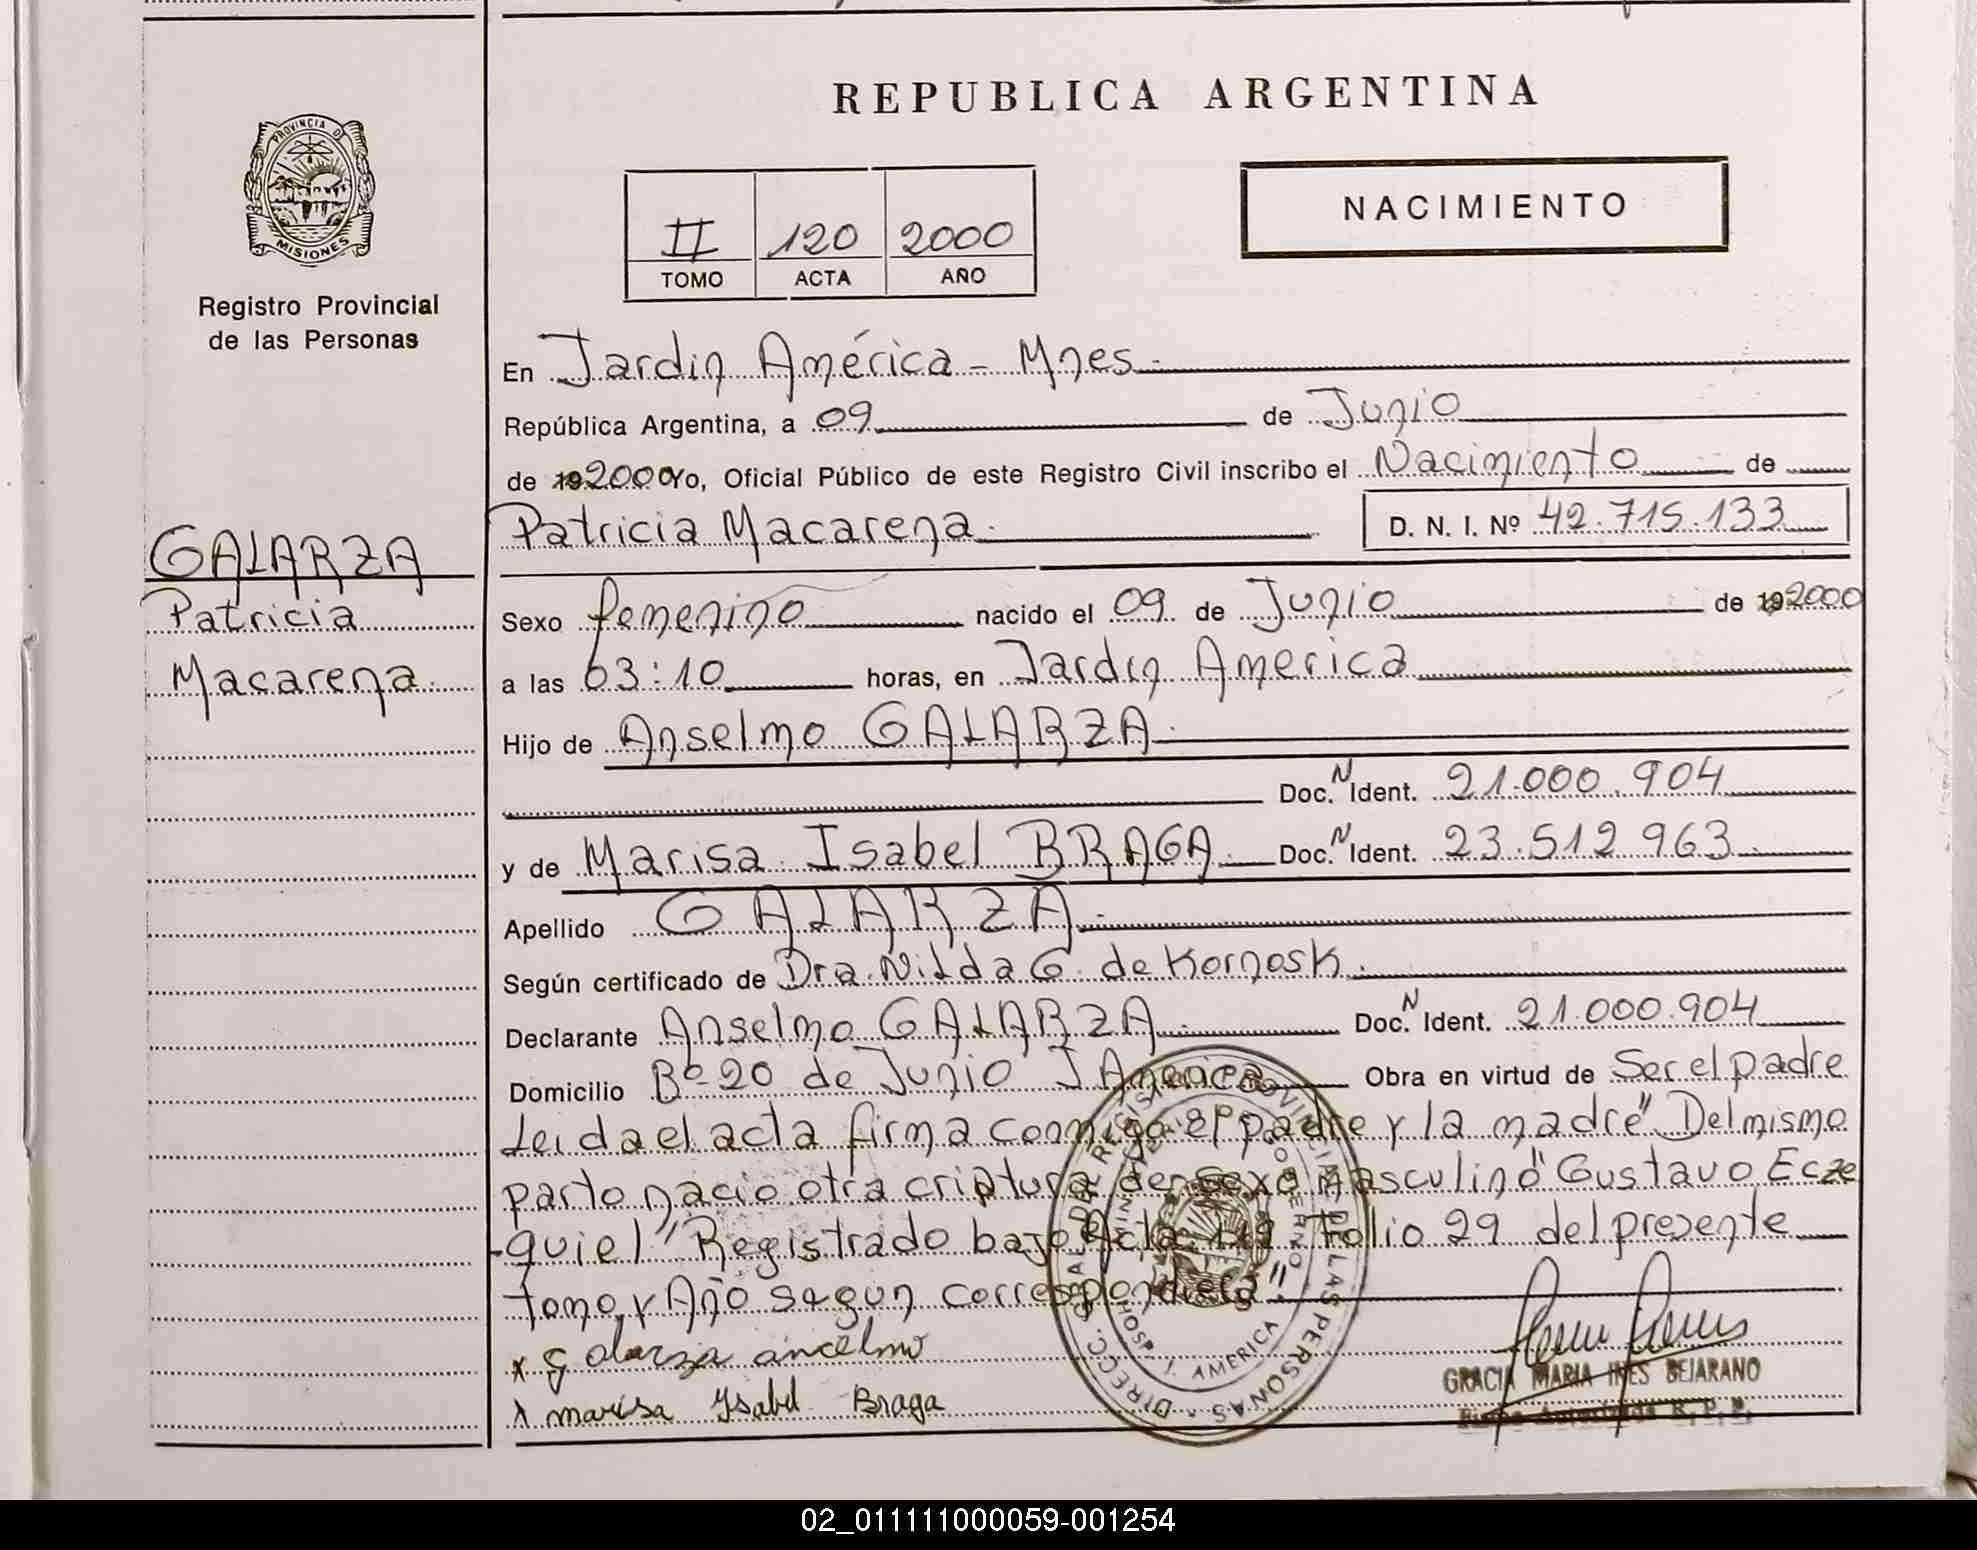 REPUBLICA ARGENTINA
PROVINCIA D
MISIONES
Registro Provincial
de las Personas
II 120 2000
TOMO ACTA AÑO
NACIMIENTO
En Jardin América - Mnes.
República Argentina, a 09 de Junio
de 19 2000 Yo, Oficial Público de este Registro Civil inscribo el Nacimiento de
Patricia Macarena. D. N. I. Nº 42.715.133
GALARZA
Patricia
Macarena.
Sexo femenino nacido el 09 de Junio de 19 2000
a las 03:10 horas, en Jardin America
Hijo de Anselmo GALARZA.
Doc. N Ident. 21.000.904
y de Marisa Isabel BRAGA. Doc. N Ident. 23.512 963.
Apellido GALARZA.
Según certificado de Dra. Nilda G. de Kornosk.
Declarante Anselmo GALARZA. Doc. N Ident. 21.000.904
Domicilio Bº 20 de Junio J America Obra en virtud de Ser el padre
Leida el acta firma conmigo el padre y la madre" Del mismo
parto nacio otra criptura de sexo Masculino "Gustavo Eze
-quiel" Registrado bajo Acta 119 Folio 29 del presente
tomo y Año segun correspondiera"
x Galarza ancelmo
x marisa Ysabel Braga
DIRECC. GRAL. DEL REGISTRO PROVINCIAL DE LAS PERSONAS
MINISTERIO DE GOBIERNO
HOSP. J. AMERICA
GRACIA MARIA INES BEJARANO
Firma Autorizada R. P. P.
02_011111000059-001254